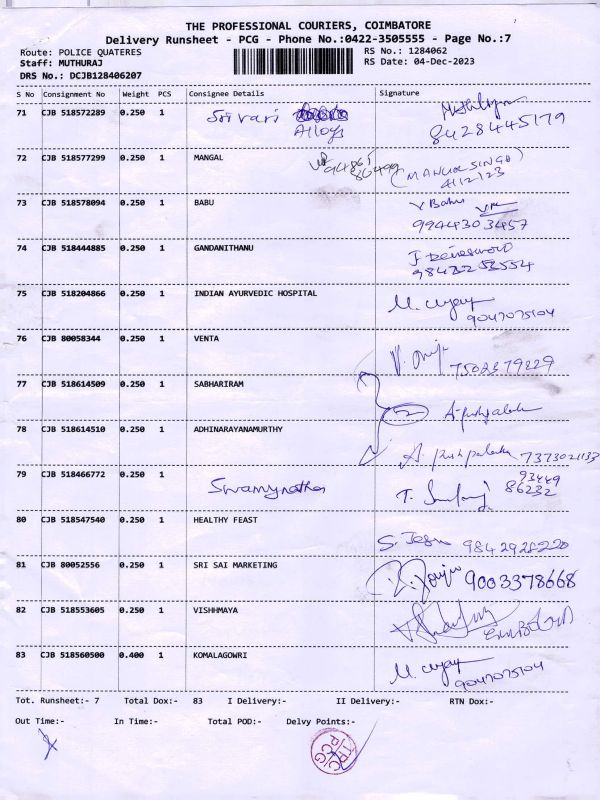 THE PROFESSIONAL COURIERS, COIMBATORE
Delivery Runsheet - PCG - Phone No.:0422-3505555 - Page No.:7
Route: POLICE QUATERES RS No.: 1284062
Staff: MUTHURAJ RS Date: 04-Dec-2023
DRS No.: DCJB128406207
S No Consignment No Weight PCS Consignee Details Signature
71 CJB 518572289 0.250 1 Srivari
Alloys
8428445179
72 CJB 518577299 0.250 1 MANGAL
(MANGAL SINGH)
4/12/23
73 CJB 518578094 0.250 1 BABU V Babu
9944303457
74 CJB 518444885 0.250 1 GANDANITHANU
75 CJB 518204866 0.250 1 INDIAN AYURVEDIC HOSPITAL
9047075104
76 CJB 80058344 0.250 1 VENTA
7502379229
77 CJB 518614509 0.250 1 SABHARIRAM
2 A. pushpalatha
78 CJB 518614510 0.250 1 ADHINARAYANAMURTHY
A. pushpalatha 7373021133
79 CJB 518466772 0.250 1 Swamynathan
93449
86232
80 CJB 518547540 0.250 1 HEALTHY FEAST
81 CJB 80052556 0.250 1 SRI SAI MARKETING
9003378668
82 CJB 518553605 0.250 1 VISHHMAYA
83 CJB 518560500 0.400 1 KOMALAGOWRI
9047075104
Tot. Runsheet:- 7 Total Dox:- 83 I Delivery:- II Delivery:- RTN Dox:-
Out Time:- In Time:- Total POD:- Delvy Points:-
TPC
PCG